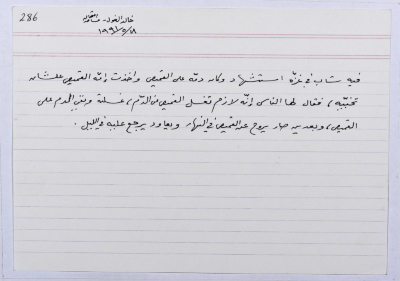 286
خالد الغول -
١٩٩١/٥/١٨
فيه شاب في غزّه استشهد وكان دمّه على القميص وأخذت إمّه القميص علشان
تخبّيه، فقال لها الناس إنّه لازم تغسل القميص من الدّم، غسلته وبقي الدم على
القميص، وبعدين صار يروح عن القميص في النهار ويعاود يرجع عليه في الليل.